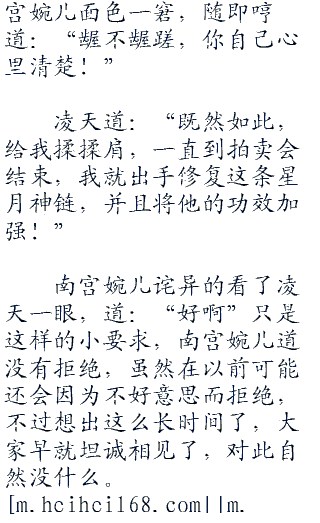 宫婉儿面色一窘，随即哼
道：“龌不龌蹉，你自己心
里清楚！”
凌天道：“既然如此，
给我揉揉肩，一直到拍卖会
结束，我就出手修复这条星
月神链，并且将他的功效加
强！”
南宫婉儿诧异的看了凌
天一眼，道：“好啊”只是
这样的小要求，南宫婉儿道
没有拒绝，虽然在以前可能
还会因为不好意思而拒绝，
不过想出这么长时间了，大
家早就坦诚相见了，对此自
然没什么。
[m.hcihci168.com||m.